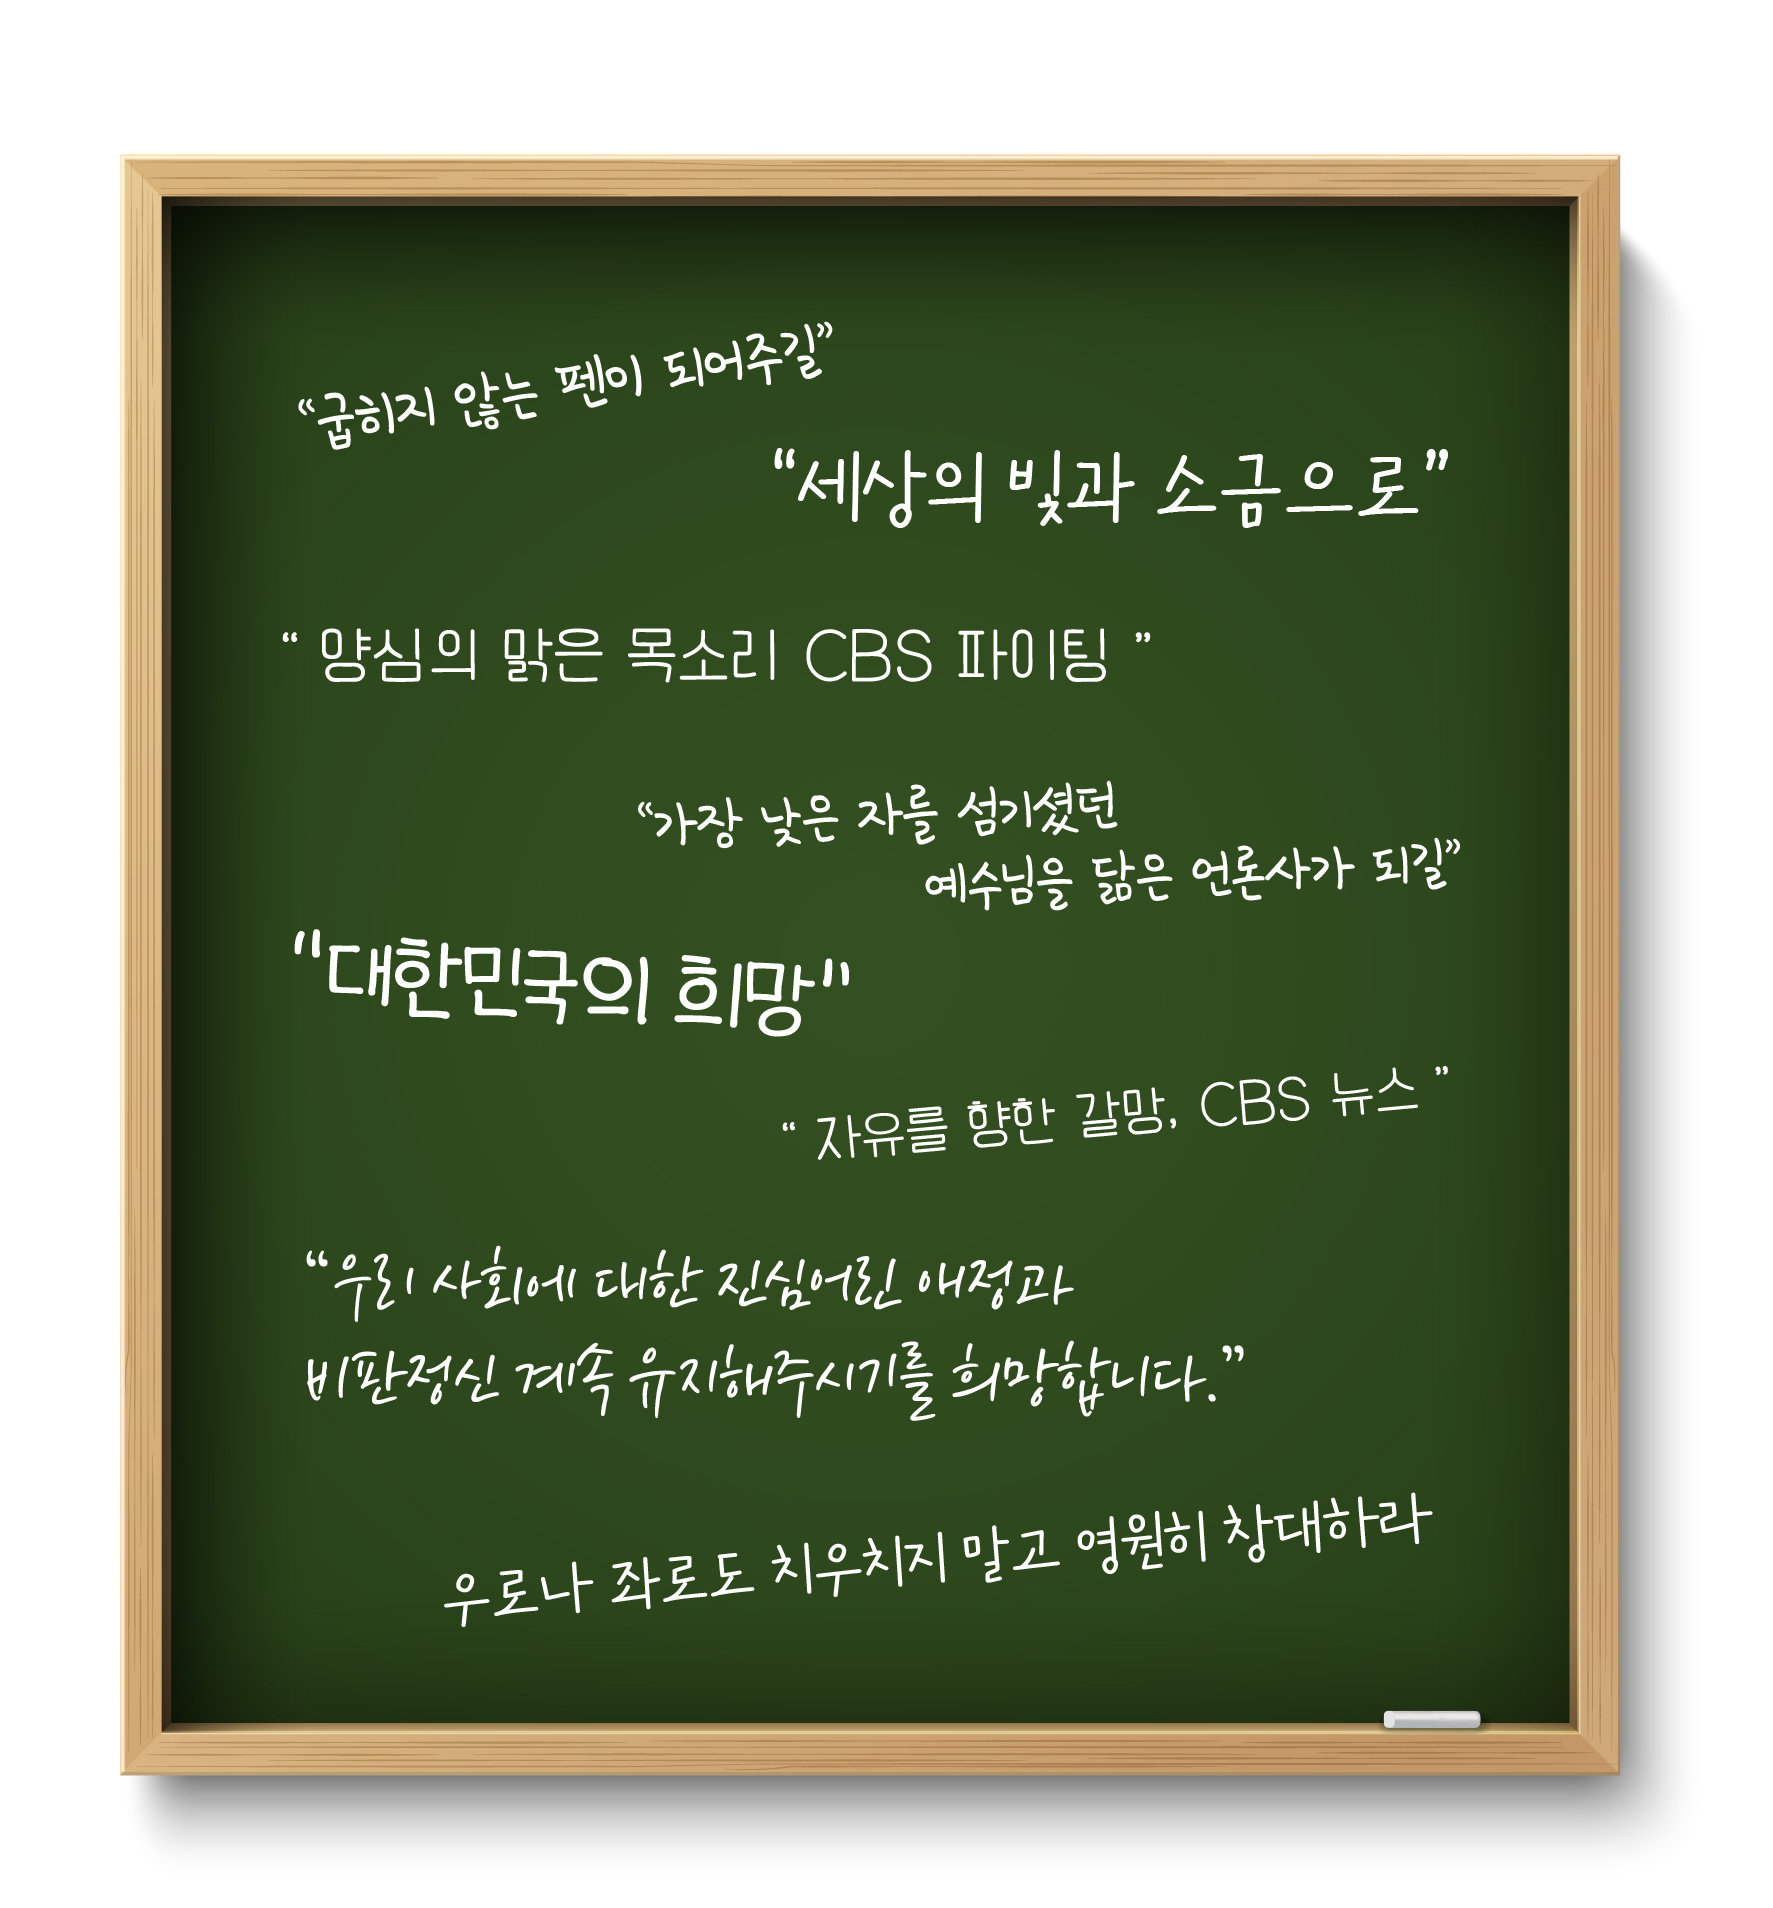 “굽히지 않는 펜이 되어주길”
“세상의 빛과 소금으로”
“ 양심의 맑은 목소리 CBS 파이팅 ”
“가장 낮은 자를 섬기셨던
예수님을 닮은 언론사가 되길”
"대한민국의 희망"
“ 자유를 향한 갈망, CBS 뉴스 ”
“우리 사회에 대한 진심어린 애정과
비판정신 계속 유지해주시기를 희망합니다.”
우로나 좌로도 치우치지 말고 영원히 창대하라